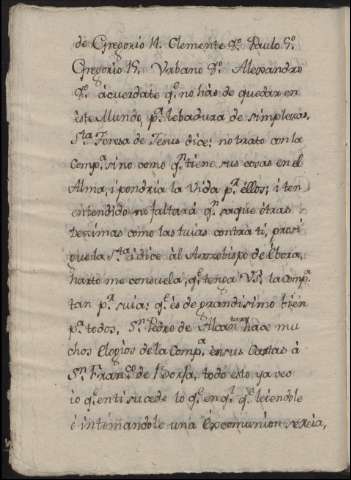 de Gregorio 14. Clemente 8º. Paulo 5º.
Gregorio 15. Vrbano 8º. Alexandro
8º. ácuerdate q.e no hàs de quedar en
èste Mundo, p.a lebadura de simplezas,
S.ta Teresa de Jesus dice: no trato con la
Comp.a sino como q.n tiene sus cosas en el
Alma, i pondria la Vida p.r ellos; i ten
entendido, no faltará q.n saque ótras
tesimas como las tuias contra ti, prosi
gue la S.ta à dice al Arzobispo de Ebora,
harto me consuela, q.e tenga V.S. la comp.a
tan p.r suia: q.e ès de grandisimo bien
p.a todos, S.n Pedro de Alcantara hàce mu
chos elogios de la Comp.a en sus Cartas à
S.n Fran.co de Borja, todo èsto ya veo
io q.e en ti sucede lo q.e en q.l q.e leiendole
è intimandole una Excomunion, rexia,